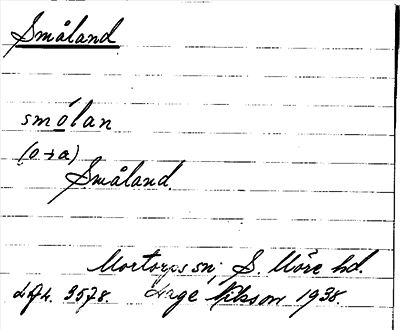 Småland
smólan
(o→a)
Småland.
Mortorps sn; S. Möre hd.
3578. Åage Nilsson 1938.